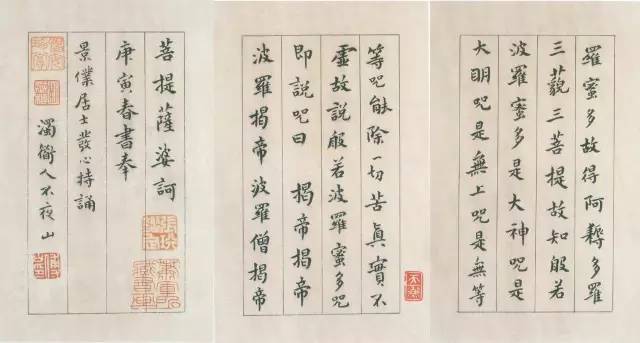 羅蜜多故得阿耨多羅
三藐三菩提故知般若
波羅蜜多是大神咒是
大明咒是無上咒是無等
等咒能除一切苦真實不
虛故說般若波羅蜜多咒
即說咒曰 揭帝揭帝
波羅揭帝波羅僧揭帝
菩提薩婆訶
庚寅春書奉
景僕居士發心持誦
濁衢人不夜山